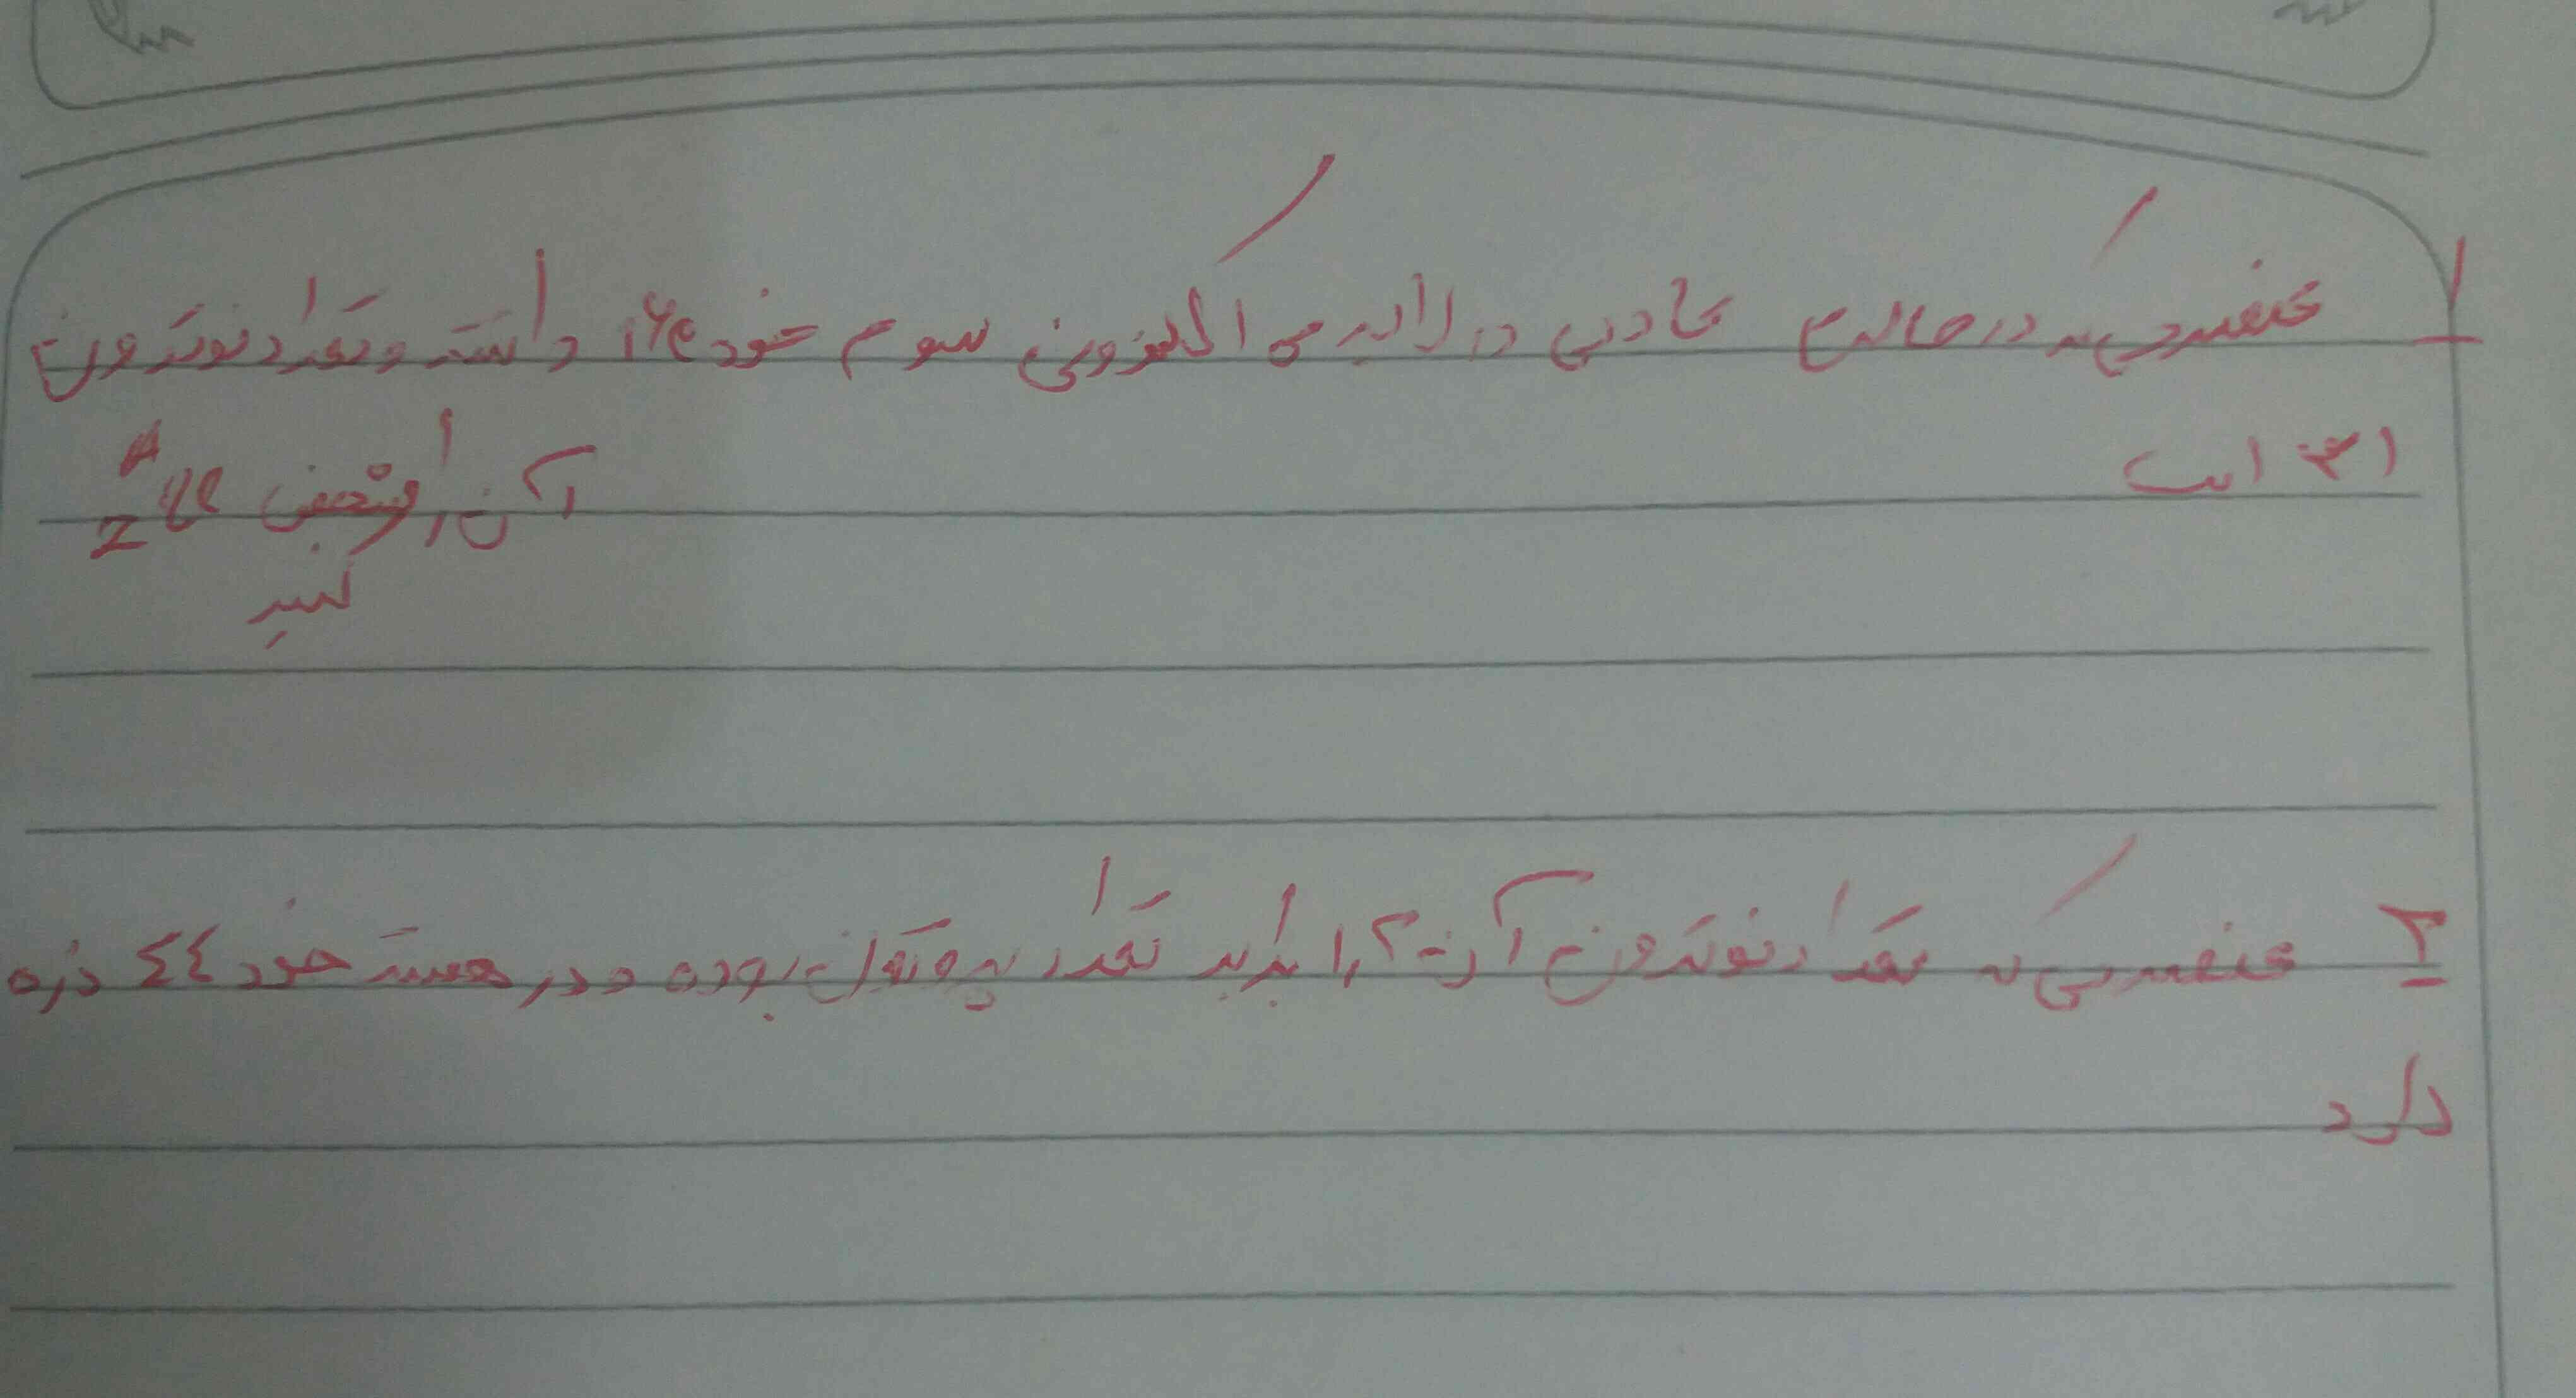 ۱ عنصری که در حالت عادی در لایه ی الکترونی سوم خود ۱۶e داشته و تعداد نوترون
۳۱ است آن را مشخص A Z
کنید
۲ عنصری که تعداد نوترون آن ۱٫۲ برابر تعداد پروتون بوده و در هسته خود ۴۴ ذره
دارد